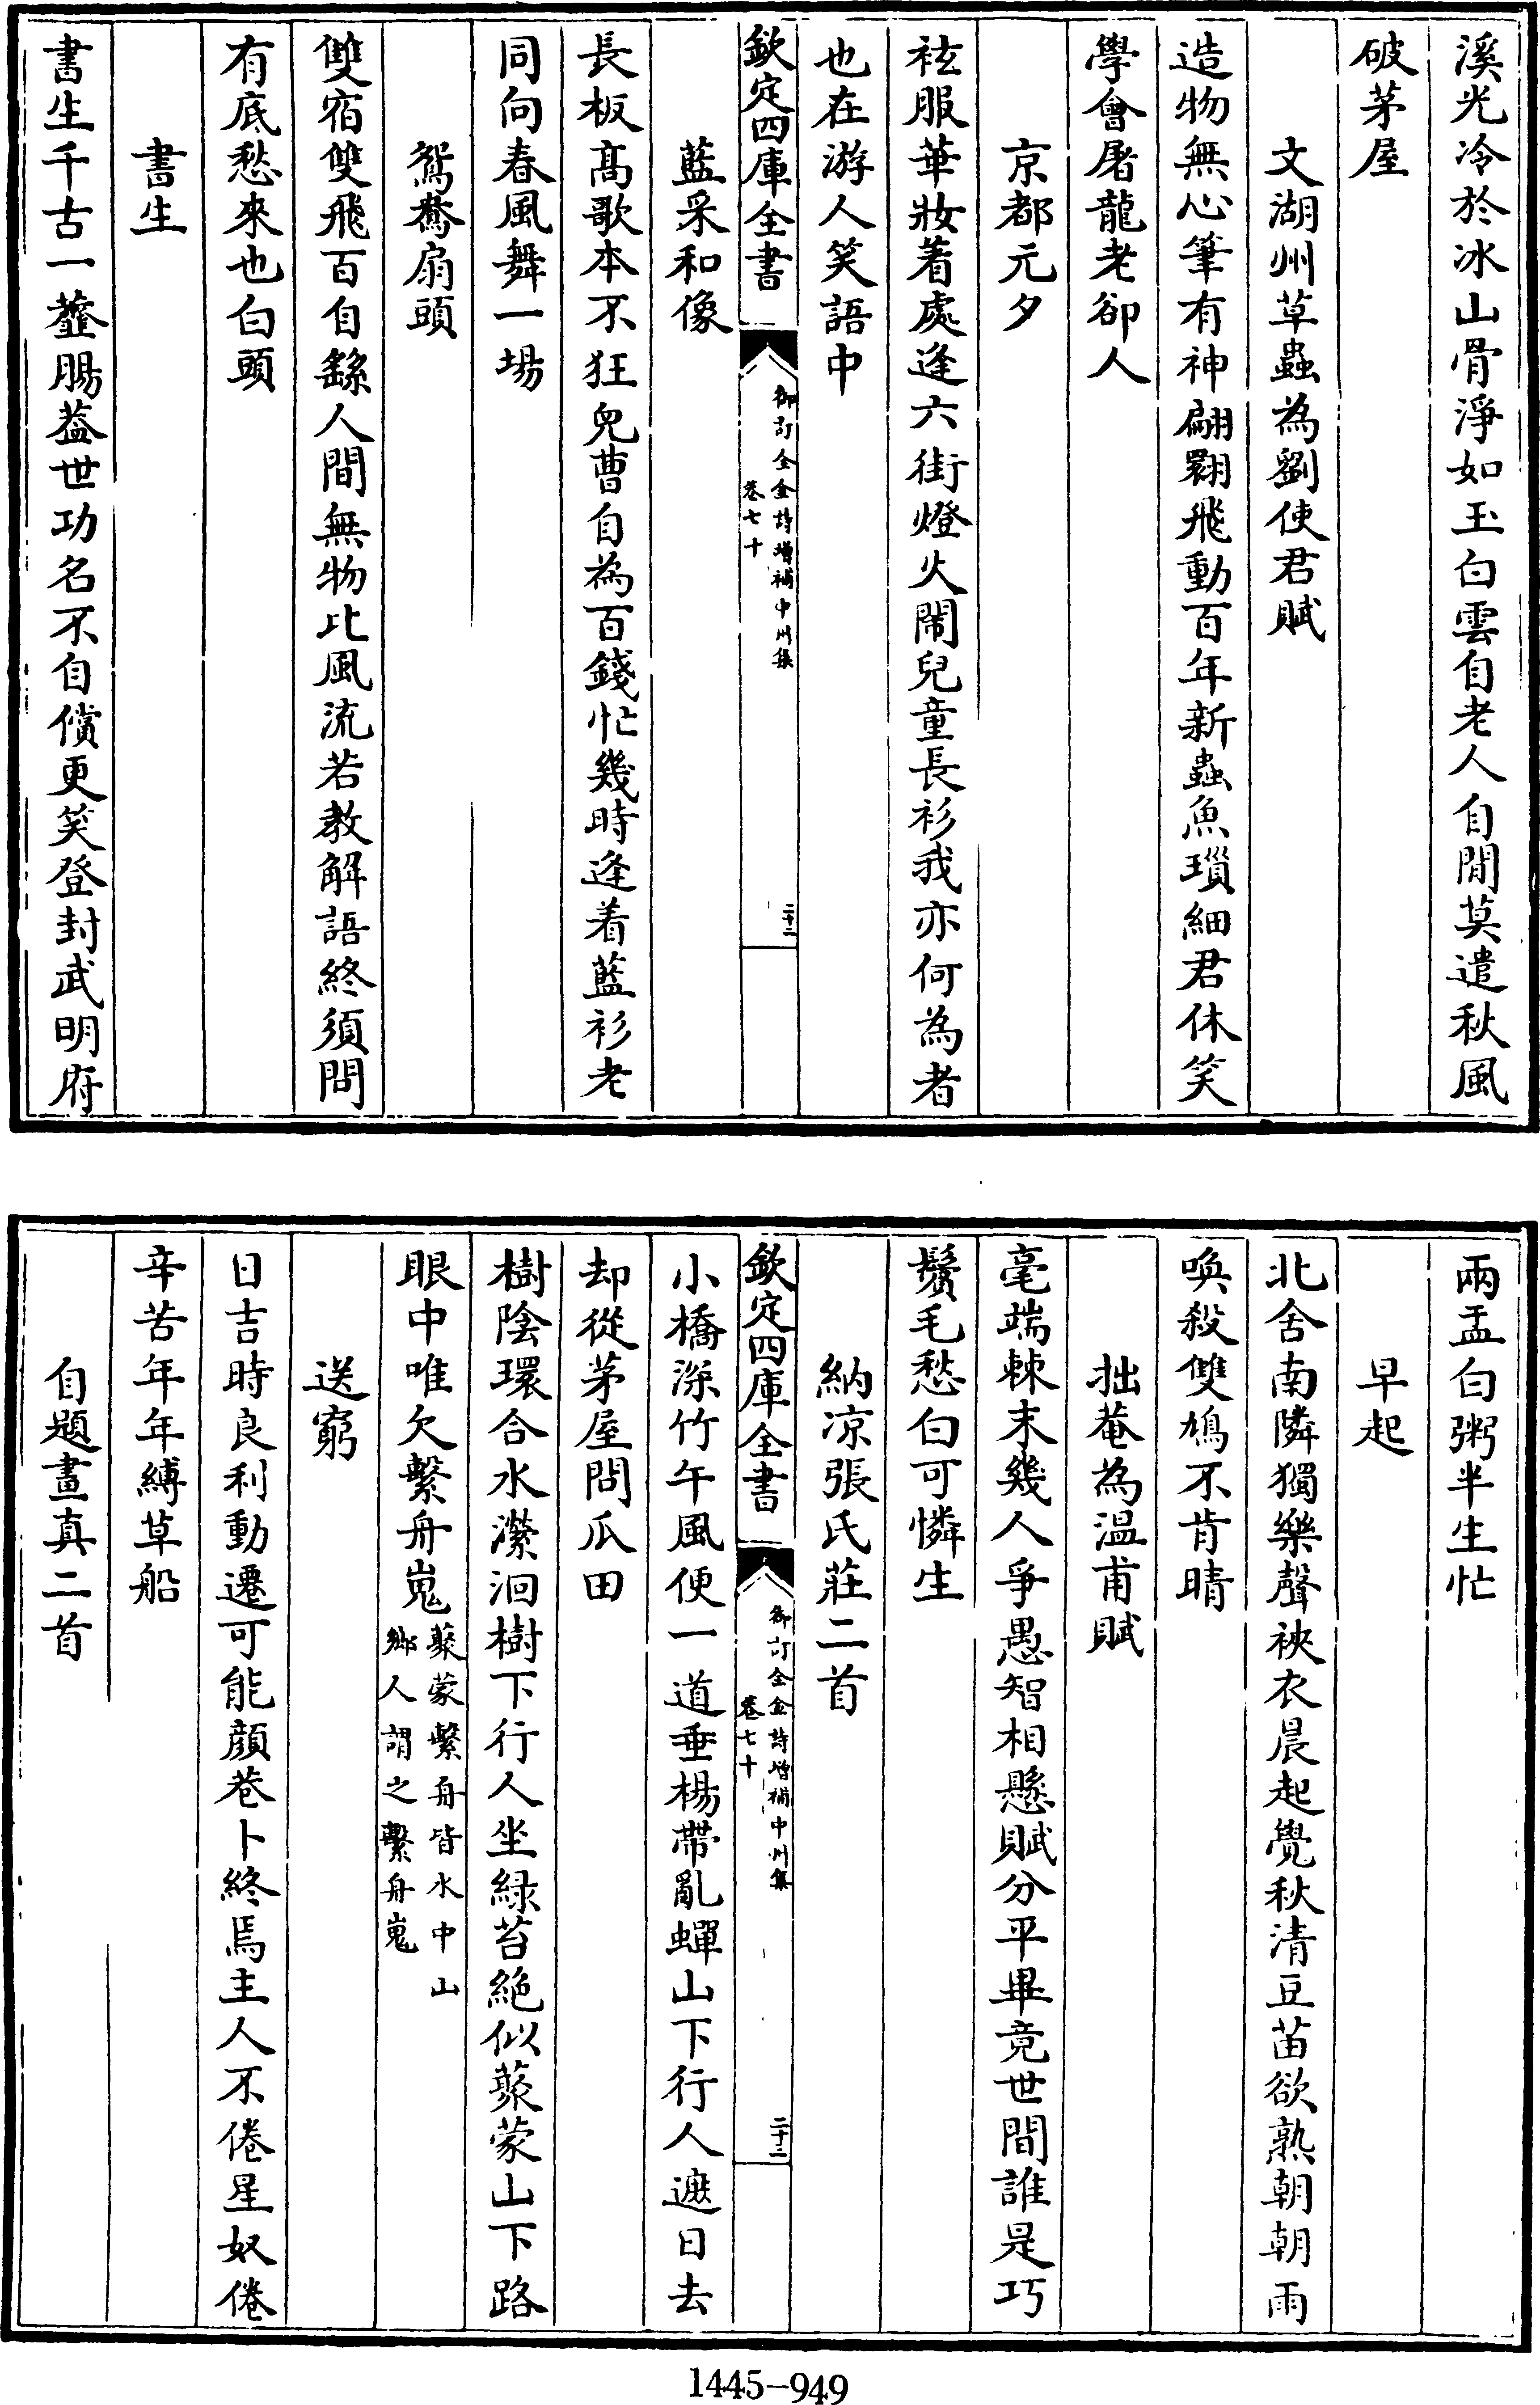 溪光冷於冰山骨淨如玉白雲自老人自閒莫遣秋風
破茅屋
文湖州草蟲為劉使君賦
造物無心筆有神翩翾飛動百年新蟲魚瑣細君休笑
學會屠龍老卻人
京都元夕
袨服華妝着處逢六街燈火鬧兒童長衫我亦何為者
也在游人笑語中
欽定四庫全書
御訂全金詩增補中州集
卷七十
二十二
藍采和像
長板髙歌本不狂兒曹自為百錢忙幾時逢着藍衫老
同向春風舞一場
鴛鴦扇頭
雙宿雙飛百自繇人間無物比風流若教解語終須問
有底愁來也白頭
書生
書生千古一虀腸葢世功名不自償更笑登封武明府
兩盂白粥半生忙
早起
北舍南隣獨樂聲裌衣晨起覺秋清豆苗欲熟朝朝雨
喚殺雙鳩不肯晴
拙菴為溫甫賦
毫端棘末幾人爭愚智相懸賦分平畢竟世間誰是巧
鬢毛愁白可憐生
納凉張氏莊二首
欽定四庫全書
御訂全金詩增補中州集
卷七十
二十三
小橋深竹午風便一道垂楊帶亂蟬山下行人遮日去
却從茅屋問瓜田
樹陰環合水瀠洄樹下行人坐綠苔絶似蒙山下路
眼中唯欠繫舟嵬
蒙繫舟皆水中山
鄉人謂之繫舟嵬
送窮
日吉時良利動遷可能顔巷卜終焉主人不倦星奴倦
辛苦年年縛草船
自題畫真二首
1445-949